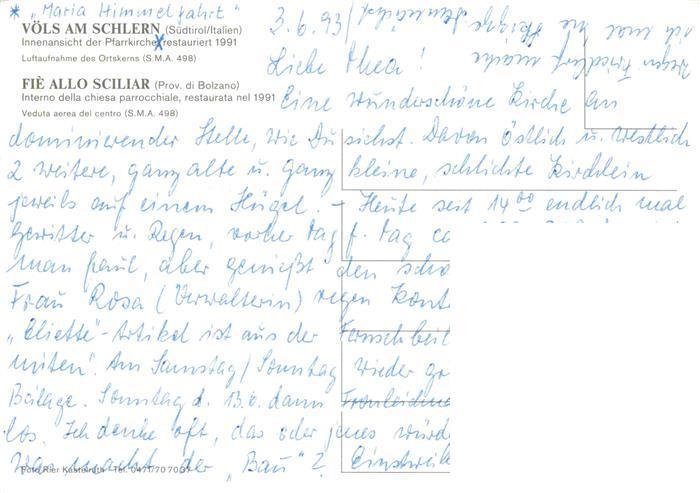 * „Maria Himmelfahrt"
VÖLS AM SCHLERN (Südtirol/Italien)
Innenansicht der Pfarrkirche, restauriert 1991
Luftaufnahme des Ortskerns (S.M.A. 498)
FIÈ ALLO SCILIAR (Prov. di Bolzano)
Interno della chiesa parrocchiale, restaurata nel 1991
Veduta aerea del centro (S.M.A. 498)
3.6.93
Liebe Thea!
Eine wunderschöne Kirche an
dominierender Stelle, wie Du siehst. Davon östlich u. westlich
2 weitere, ganz alte u. ganz kleine, schlichte Kirchlein
jeweils auf einem Hügel. – Heute seit 14⁰⁰ endlich mal
Gewitter u. Regen, vorher Tag f. Tag
man faul, aber genießt den
Frau Rosa (Verwalterin) regen
„Eliette"-Artikel ist aus der
Am Samstag/Sonntag wieder
Beilage. Sonntag d. 13.6. dann
los. Ich denke oft, das oder jenes
Was macht der „Bau"?
Foto Rier Kastelruth Tel. 0471/70 70 07